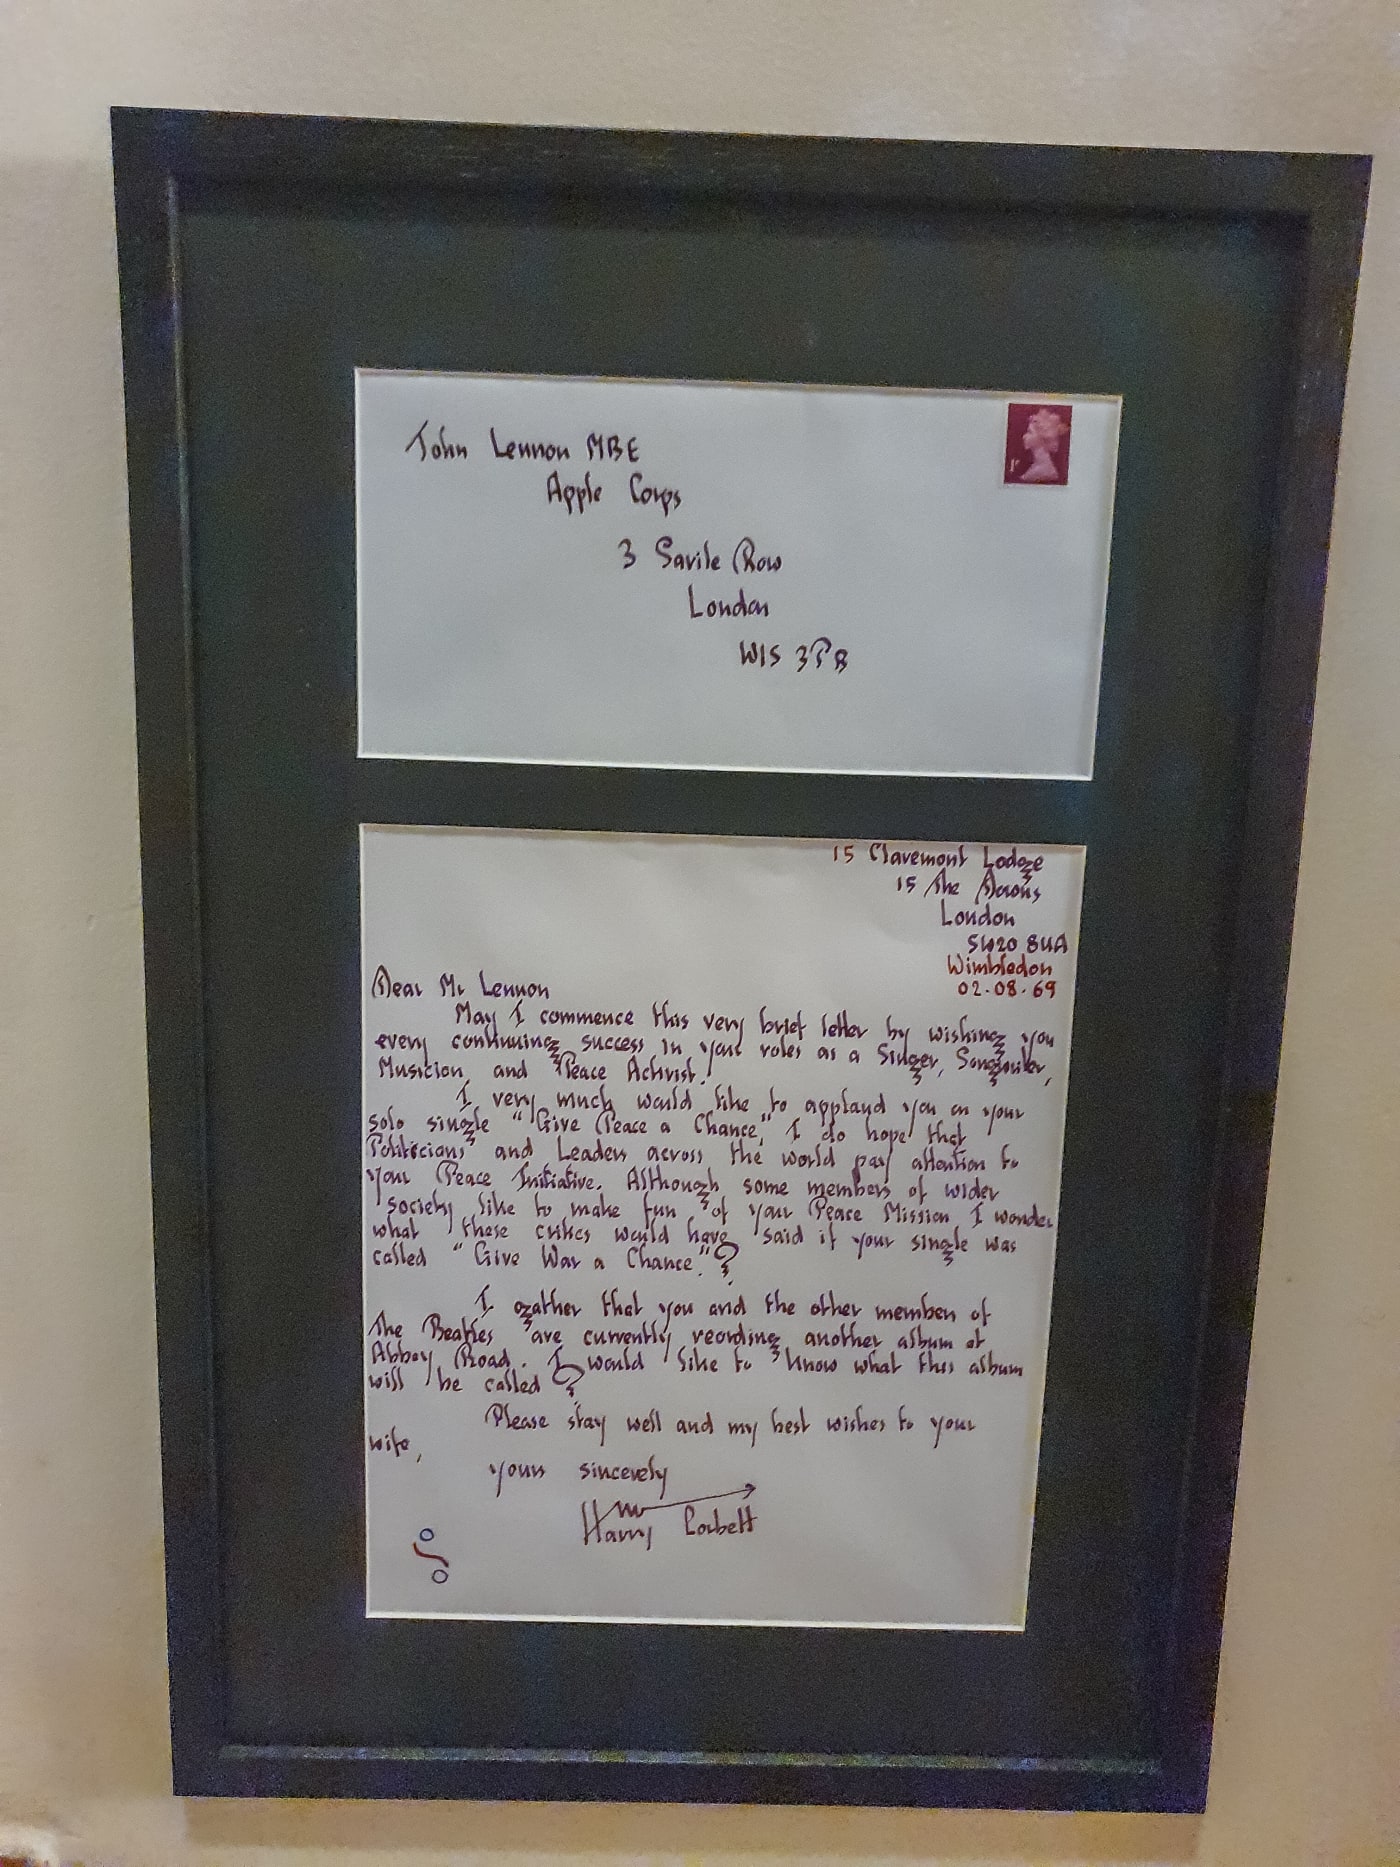 John Lennon MBE
Apple Corps
3 Savile Row
London
W1S 3PB
1P
15 Claremont Lodge
15 The Downs
London
SW20 8UA
Wimbledon
02.08.69
Dear Mr Lennon
May I commence this very brief letter by wishing you
every continuing success in your roles as a Singer, Songwriter,
Musician and Peace Activist.
I very much would like to applaud you on your
solo single "Give Peace a Chance," I do hope that
Politicians and Leaders across the world pay attention to
your Peace Initiative. Although some members of wider
society like to make fun of your Peace Mission I wonder
what these critics would have said if your single was
called "Give War a Chance."?
I gather that you and the other members of
The Beatles are currently recording another album at
Abbey Road. I would like to know what this album
will be called?
Please stay well and my best wishes to your
wife,
yours sincerely
Harry Corbett